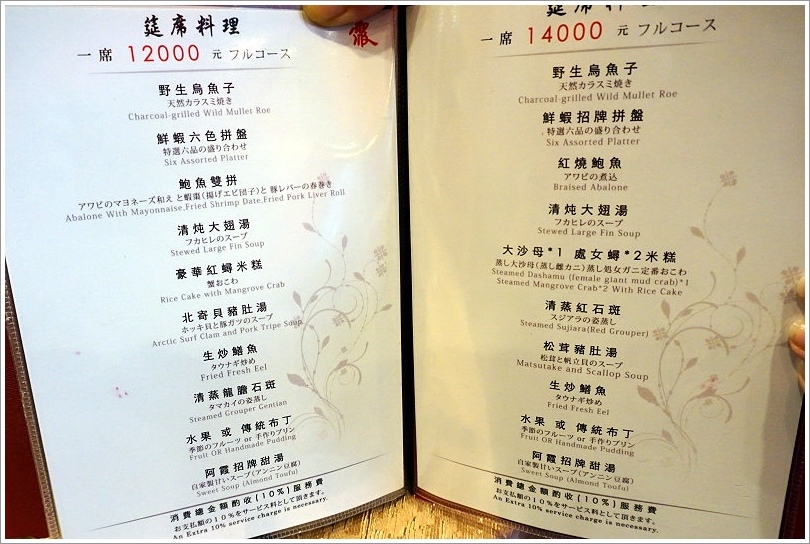 筵席料理
霞
一席 12000 元 フルコース
野生烏魚子
天然カラスミ焼き
Charcoal-grilled Wild Mullet Roe
鮮蝦六色拼盤
特選六品の盛り合わせ
Six Assorted Platter
鮑魚雙拼
アワビのマヨネーズ和え と蝦棗(揚げエビ団子)と 豚レバーの春巻き
Abalone With Mayonnaise,Fried Shrimp Date,Fried Pork Liver Roll
清炖大翅湯
フカヒレのスープ
Stewed Large Fin Soup
豪華紅蟳米糕
蟹おこわ
Rice Cake with Mangrove Crab
北寄貝豬肚湯
ホッキ貝と豚ガツのスープ
Arctic Surf Clam and Pork Tripe Soup
生炒鱔魚
タウナギ炒め
Fried Fresh Eel
清蒸龍膽石斑
タマカイの姿蒸し
Steamed Grouper Gentian
水果 或 傳統布丁
季節のフルーツ or 手作りプリン
Fruit OR Handmade Pudding
阿霞招牌甜湯
自家製甘いスープ(アンニン豆腐)
Sweet Soup (Almond Toufu)
消費總金額酌收(10%)服務費
お支払額の10%をサービス料として頂きます。
An Extra 10% service charge is necessary.
筵席料理
一席 14000 元 フルコース
野生烏魚子
天然カラスミ焼き
Charcoal-grilled Wild Mullet Roe
鮮蝦招牌拼盤
特選六品の盛り合わせ
Six Assorted Platter
紅燒鮑魚
アワビの煮込
Braised Abalone
清炖大翅湯
フカヒレのスープ
Stewed Large Fin Soup
大沙母*1 處女蟳*2米糕
蒸し大沙母(蒸し雌カニ)蒸し処女ガニ定番おこわ
Steamed Dashamu (female giant mud crab)*1
Steamed Mangrove Crab*2 With Rice Cake
清蒸紅石斑
スジアラの姿蒸し
Steamed Sujiara(Red Grouper)
松茸豬肚湯
松茸と帆立貝のスープ
Matsutake and Scallop Soup
生炒鱔魚
タウナギ炒め
Fried Fresh Eel
水果 或 傳統布丁
季節のフルーツ or 手作りプリン
Fruit OR Handmade Pudding
阿霞招牌甜湯
自家製甘いスープ(アンニン豆腐)
Sweet Soup (Almond Toufu)
消費總金額酌收(10%)服務費
お支払額の10%をサービス料として頂きます。
An Extra 10% service charge is necessary.